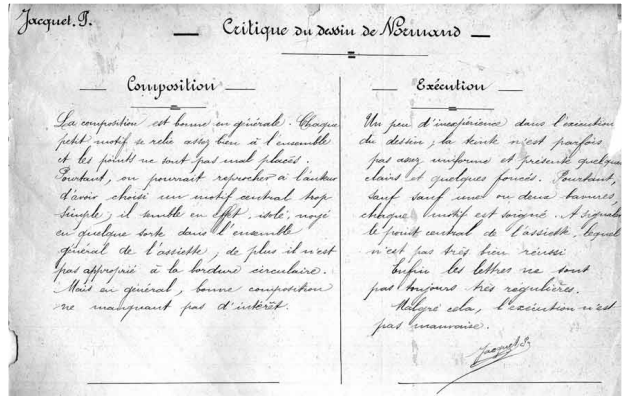 Jacquet. P.
Critique du dessin de Normand
Composition
La composition est bonne en générale. Chaque
petit motif se relie assez bien à l'ensemble
et les points ne sont pas mal placés.
Pourtant, on pourrait reprocher à l'auteur
d'avoir choisi un motif central trop
simple; il semble en effet, isolé, noyé
en quelque sorte dans l'ensemble
général de l'assiette; de plus il n'est
pas approprié à la bordure circulaire.
Mais en général, bonne composition
ne manquant pas d'intérêt.
Exécution
Un peu d'inexpérience dans l'exécution
du dessin; la teinte n'est parfois
pas assez uniforme et présente quelques
clairs et quelques foncés. Pourtant,
sauf sauf une ou deux bavures,
chaque motif est soigné. A signaler
le point central de l'assiette, lequel
n'est pas très bien réussi
Enfin les lettres ne sont
pas toujours très régulières.
Malgré cela, l'exécution n'est
pas mauvaise.
Jacquet P.